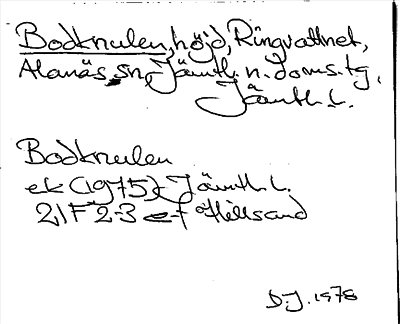 Bodknulen, höjd, Ringvattnet,
Alanäs sn, Jämtl. n. doms. tg,
Jämtl. l.
Bodknulen
ek (1975) Jämtl. l.
21F 2-3 e-f Hillsand
D.J. 1978